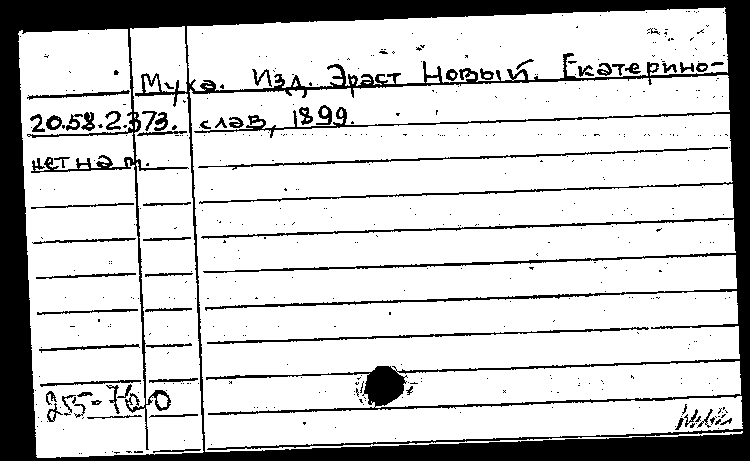 Муха. Изд. Эраст Новый. Екатерино-
20.58.2.373. слав, 1899.
нет на п.
255-760